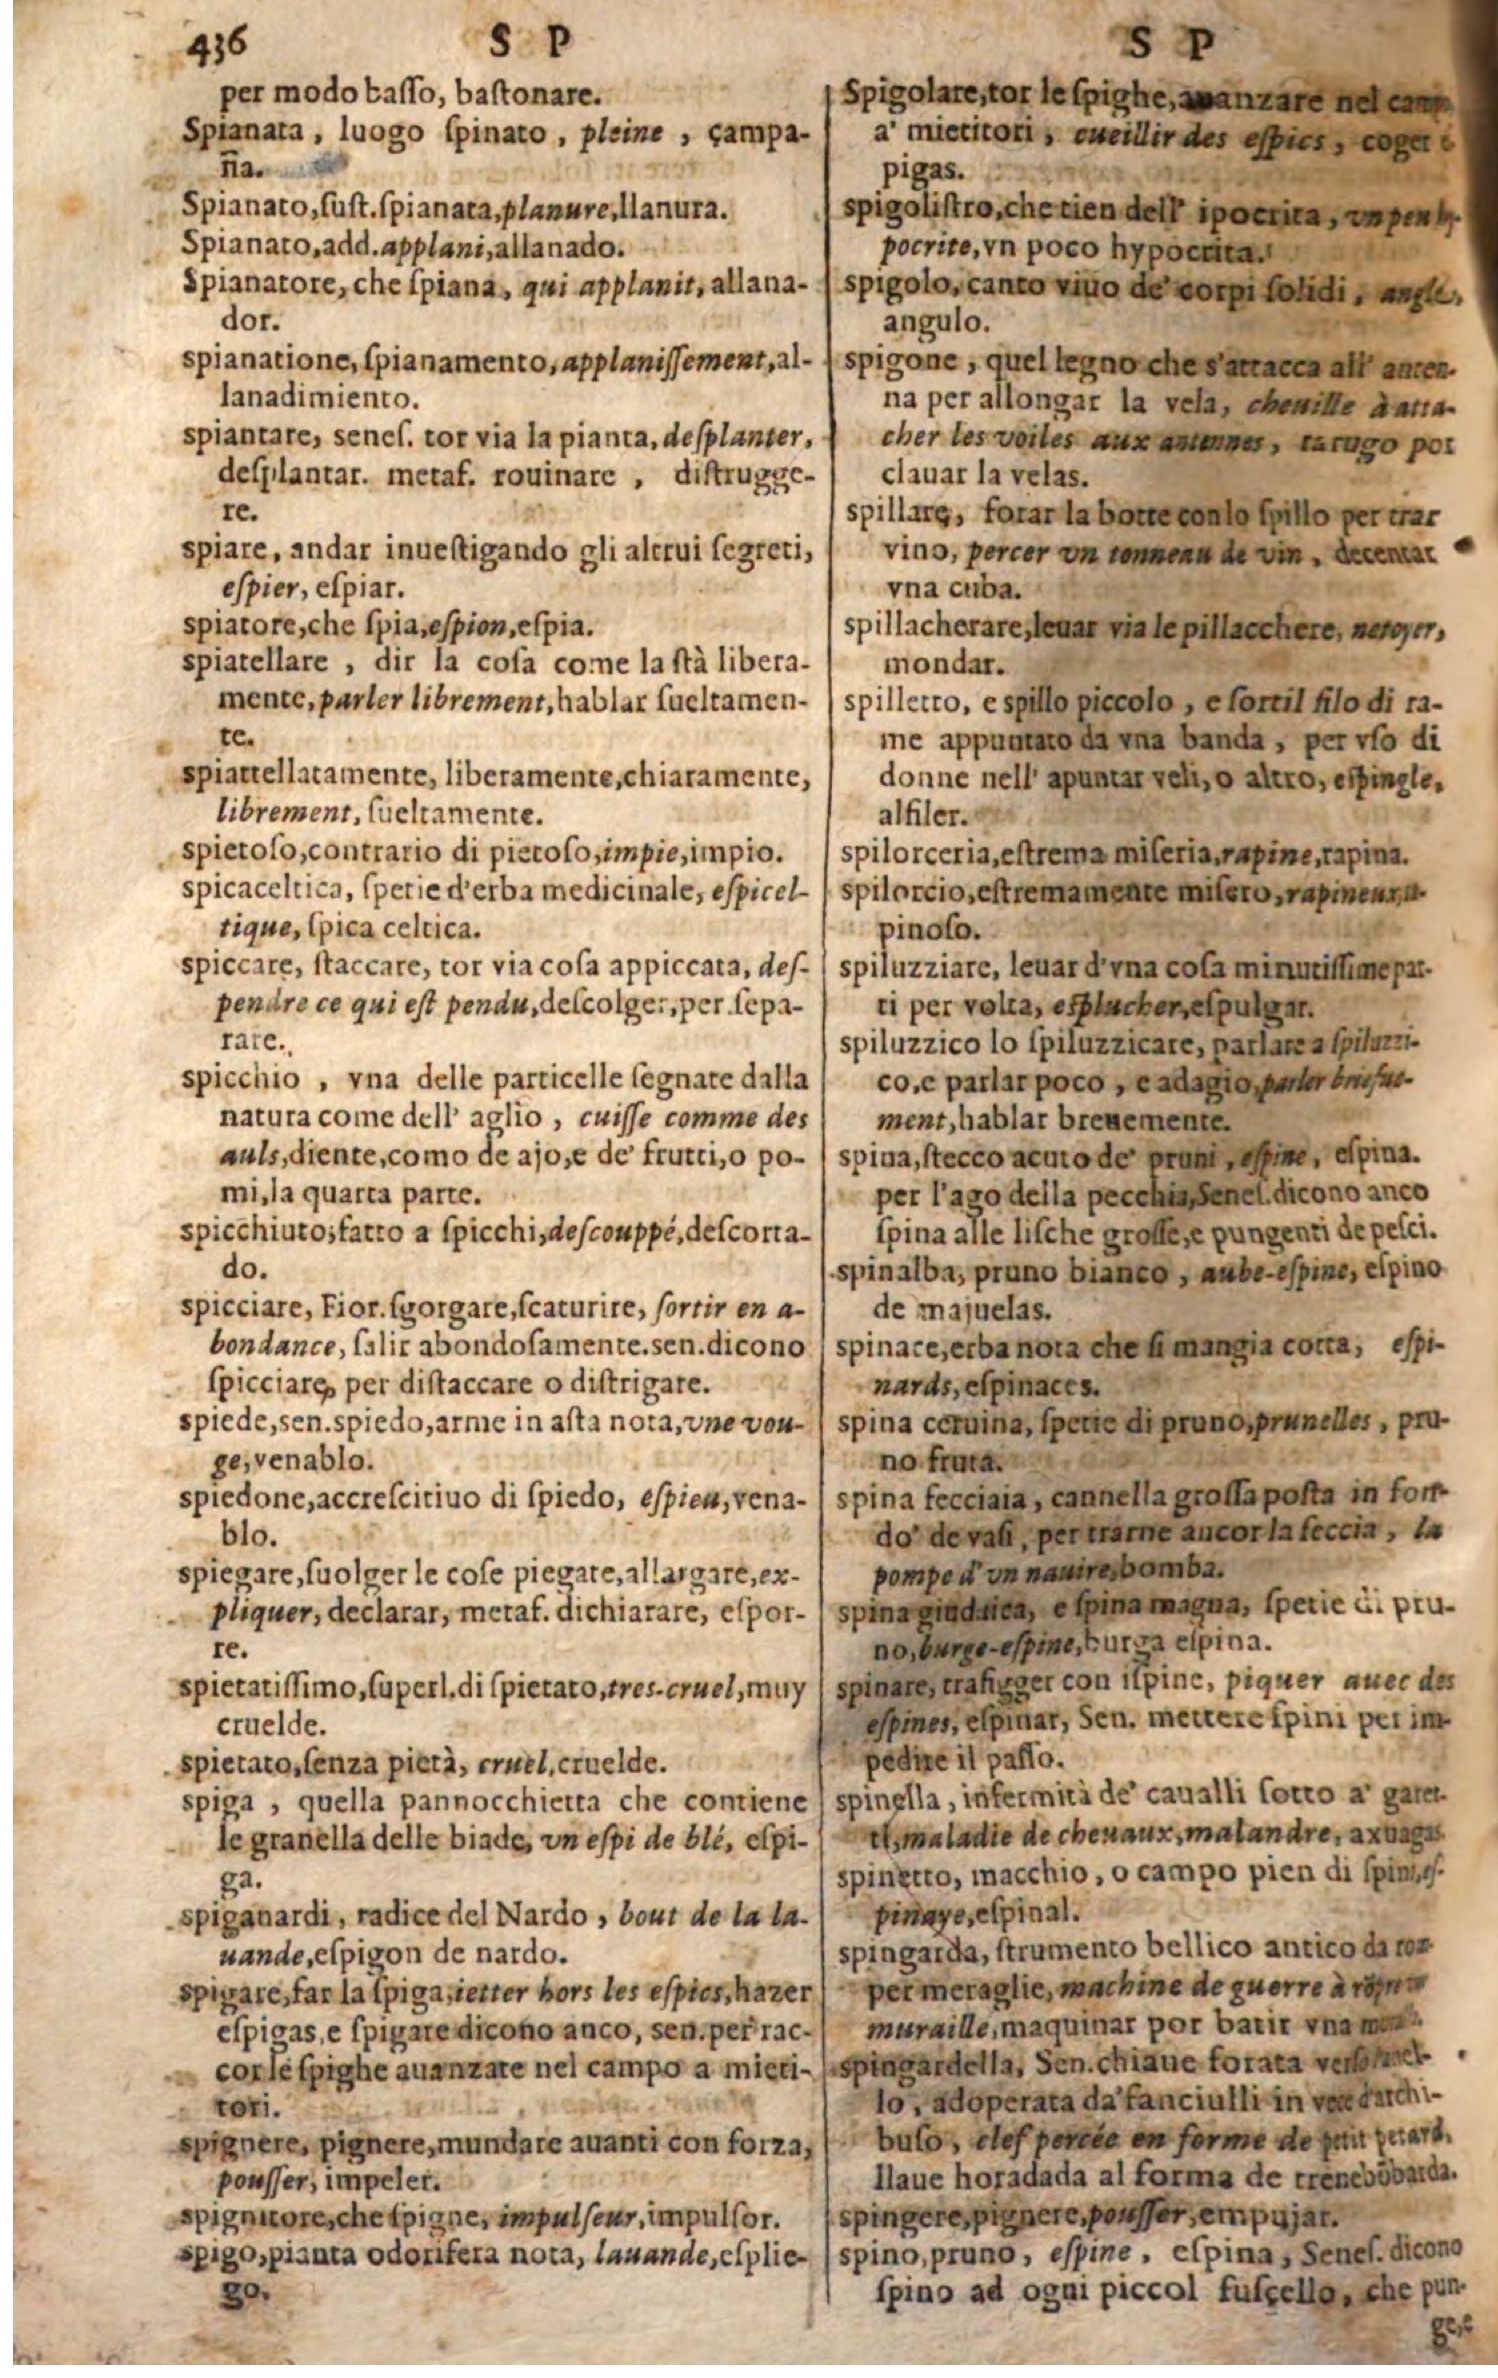 436 S P
per modo baſſo, baſtonare.
Spianata, luogo ſpinato, pleine, çampa-
ña.
Spianato,ſuſt.ſpianata,planure,llanura.
Spianato,add.applani,allanado.
Spianatore, che ſpiana, qui applanit, allana-
dor.
spianatione, ſpianamento, applaniſſement, al-
lanadimiento.
spiantare, seneſ. tor via la pianta, deſplanter,
deſplantar. metaf. rouinare, diſtrugge-
re.
spiare, andar inueſtigando gli altrui ſegreti,
eſpier, eſpiar.
spiatore,che ſpia,eſpion,eſpia.
spiatellare, dir la coſa come la ſtà libera-
mente, parler librement, hablar ſueltamen-
te.
spiattellatamente, liberamente,chiaramente,
librement, ſueltamente.
spietoſo,contrario di pietoſo,impie,impio.
spicaceltica, ſpetie d'erba medicinale, eſpicel-
tique, ſpica celtica.
spiccare, ſtaccare, tor via coſa appiccata, deſ-
pendre ce qui eſt pendu,deſcolger,per ſepa-
rare.
spicchio, vna delle particelle ſegnate dalla
natura come dell' aglio, cuiſſe comme des
auls,diente,como de ajo,e de' frutti,o po-
mi,la quarta parte.
spicchiuto,fatto a ſpicchi,deſcouppé,deſcorta-
do.
spicciare, Fior.ſgorgare,ſcaturire, ſortir en a-
bondance, ſalir abondoſamente.sen.dicono
ſpicciare, per diſtaccare o diſtrigare.
spiede,sen.spiedo,arme in aſta nota,vne vou-
ge,venablo.
spiedone,accreſcitiuo di ſpiedo, eſpieu,vena-
blo.
spiegare,ſuolger le coſe piegate,allargare,ex-
pliquer, declarar, metaf. dichiarare, eſpor-
re.
spietatiſſimo,ſuperl.di ſpietato,tres-cruel,muy
cruelde.
spietato,ſenza pietà, cruel,cruelde.
spiga, quella pannocchietta che contiene
le granella delle biade, vn eſpi de blé, eſpi-
ga.
spiganardi, radice del Nardo, bout de la la-
uande,eſpigon de nardo.
spigare,far la ſpiga,ietter hors les eſpics,hazer
eſpigas,e ſpigare dicono anco, sen.per rac-
cor le ſpighe auanzate nel campo a mieti-
tori.
spignere, pignere,mundare auanti con forza,
pouſſer, impeler.
spignitore,che ſpigne, impulſeur,impulſor.
spigo,pianta odorifera nota, lauande,eſplie-
go.
S P
Spigolare,tor le ſpighe,auanzare nel
a' mietitori, cueillir des eſpics, coger
pigas.
spigoliſtro,che tien dell' ipocrita,
pocrite,vn poco hypocrita.
spigolo, canto viuo de' corpi ſolidi, angle,
angulo.
spigone, quel legno che s'attacca all' anten-
na per allongar la vela, cheuille à atta-
cher les voiles aux antennes, tarugo por
clauar la velas.
spillare, forar la botte con lo ſpillo per trar
vino, percer vn tonneau de vin, decentar
vna cuba.
spillacherare,leuar via le pillacchere, netoyer,
mondar.
spilletto, e spillo piccolo, e ſottil filo di ra-
me appuntato da vna banda, per vſo di
donne nell' apuntar veli,o altro, eſpingle,
alfiler.
spilorceria,eſtrema miſeria,rapine,rapina.
spilorcio,eſtremamente miſero,rapineux,
pinoſo.
spiluzziare, leuar d'vna coſa minutiſſime par-
ti per volta, eſplucher,eſpulgar.
spiluzzico lo ſpiluzzicare, parlare a ſpiluzzi-
co,e parlar poco, e adagio,parler briefue-
ment,hablar breuemente.
spina,ſtecco acuto de' pruni, eſpine, eſpina.
per l'ago della pecchia,Seneſ.dicono anco
ſpina alle liſche groſſe,e pungenti de peſci.
spinalba, pruno bianco, aube-eſpine, eſpino
de majuelas.
spinace,erba nota che ſi mangia cotta, eſpi-
nards, eſpinaces.
spina ceruina, ſpetie di pruno,prunelles, pru-
no fruta.
spina fecciaia, cannella groſſa poſta in fon-
do' de vaſi, per trarne ancor la feccia, la
pompe d'vn nauire,bomba.
spina giudaica, e ſpina magna, ſpetie di pru-
no,burge-eſpine,burga eſpina.
spinare, trafigger con iſpine, piquer auec des
eſpines, eſpinar, Sen. mettere ſpini per im-
pedire il paſſo.
spinella, infermità de' caualli ſotto a' garet-
ti,maladie de cheuaux,malandre, axuagas
spinetto, macchio, o campo pien di ſpini,eſ-
pinaye,eſpinal.
spingarda, ſtrumento bellico antico da rom-
per meraglie, machine de guerre à
muraille,maquinar por batir vna
spingardella, Sen.chiaue forata verſo
lo, adoperata da'fanciulli in vece d'archi-
buſo, clef percée en forme de petit petard,
llaue horadada al forma de
spingere,pignere,pouſſer,empujar.
spino,pruno, eſpine, eſpina, Seneſ. dicono
ſpino ad ogni piccol fuſcello, che pun-
ge,e